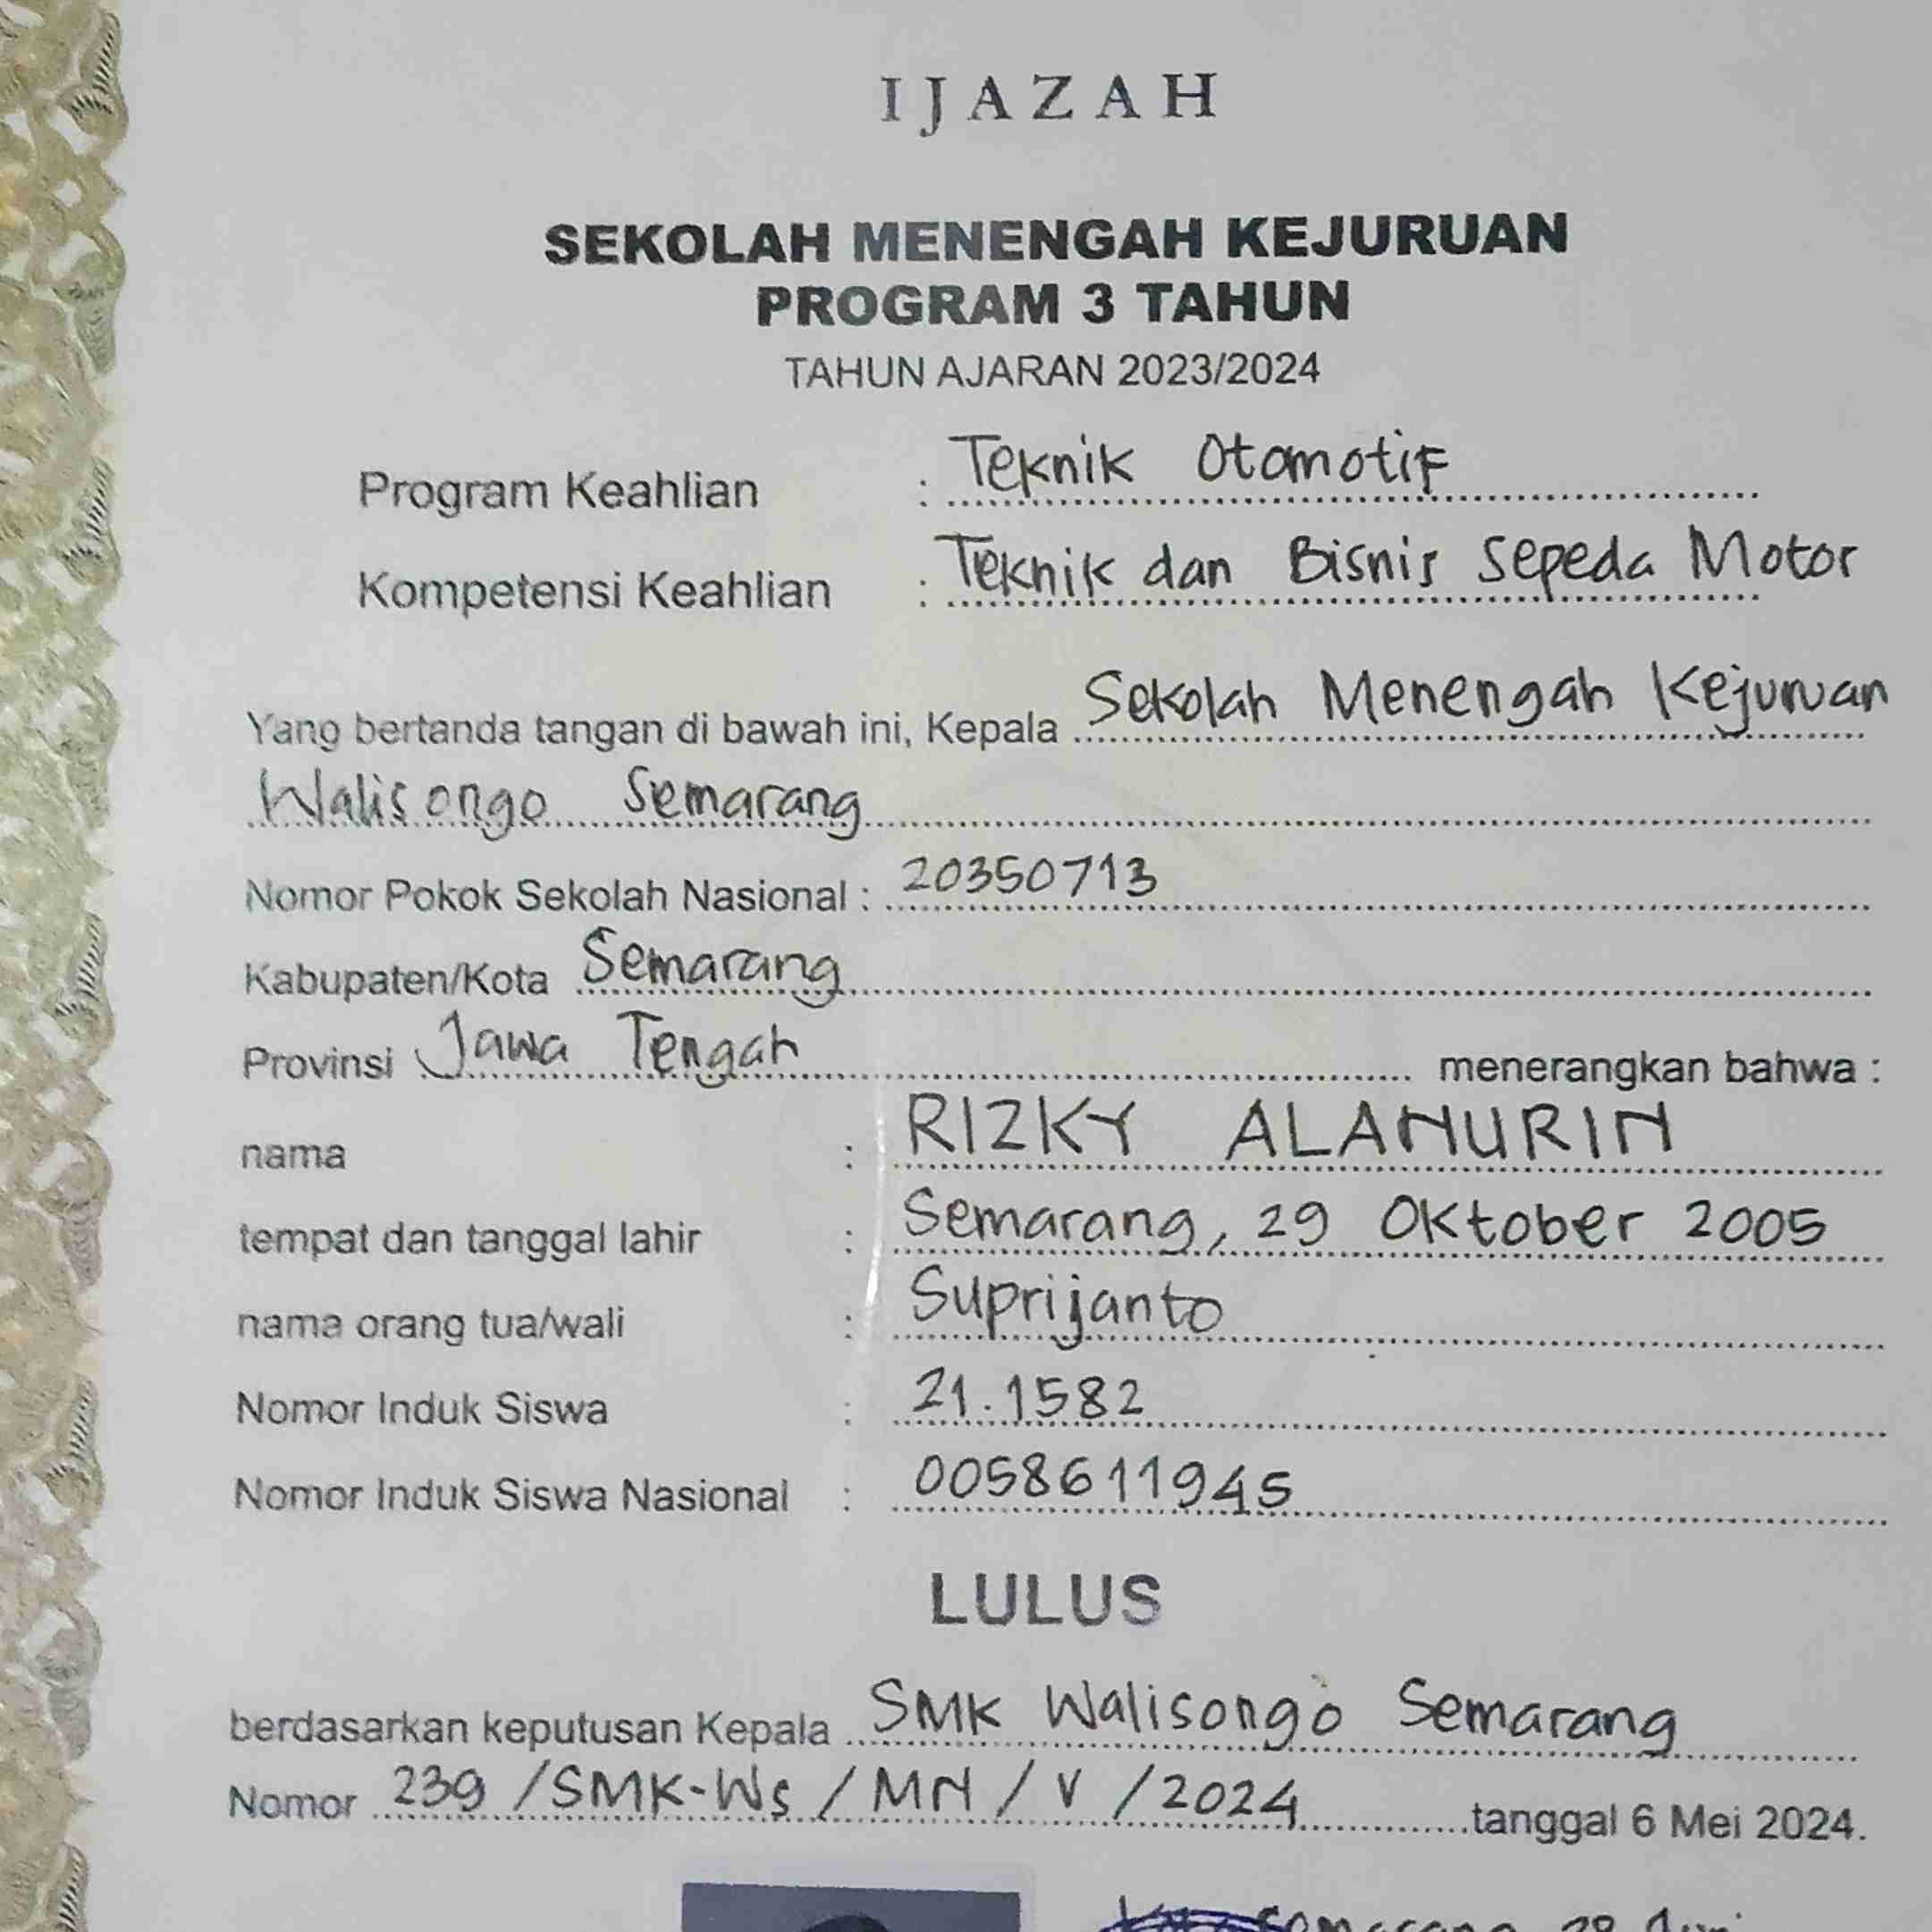 IJAZAH
SEKOLAH MENENGAH KEJURUAN
PROGRAM 3 TAHUN
TAHUN AJARAN 2023/2024
Program Keahlian : Teknik Otomotif
Kompetensi Keahlian : Teknik dan Bisnis Sepeda Motor
Yang bertanda tangan di bawah ini, Kepala Sekolah Menengah Kejuruan
Walisongo Semarang
Nomor Pokok Sekolah Nasional : 20350713
Kabupaten/Kota Semarang
Provinsi Jawa Tengah menerangkan bahwa :
nama : RIZKY ALANURIN
tempat dan tanggal lahir : Semarang, 29 Oktober 2005
nama orang tua/wali : Suprijanto
Nomor Induk Siswa : 21.1582
Nomor Induk Siswa Nasional : 0058611945
LULUS
berdasarkan keputusan Kepala SMK Walisongo Semarang
Nomor 239/SMK-Ws/MN/V/2024 tanggal 6 Mei 2024.
Semarang